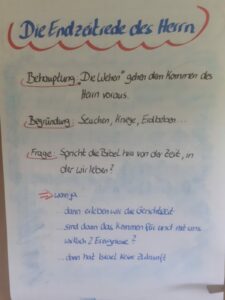 Die Endzeitrede des Herrn
Behauptung: "Die Wehen" gehen dem Kommen des
Herrn voraus.
Begründung: Seuchen, Kriege, Erdbeben...
Frage: Spricht die Bibel hier von der Zeit, in
der wir leben?
⇒ wenn ja
...dann erleben wir die Gerichtszeit
...sind dann das Kommen für und mit uns
wirklich 2 Ereignisse?
...dann hat Israel keine Zukunft